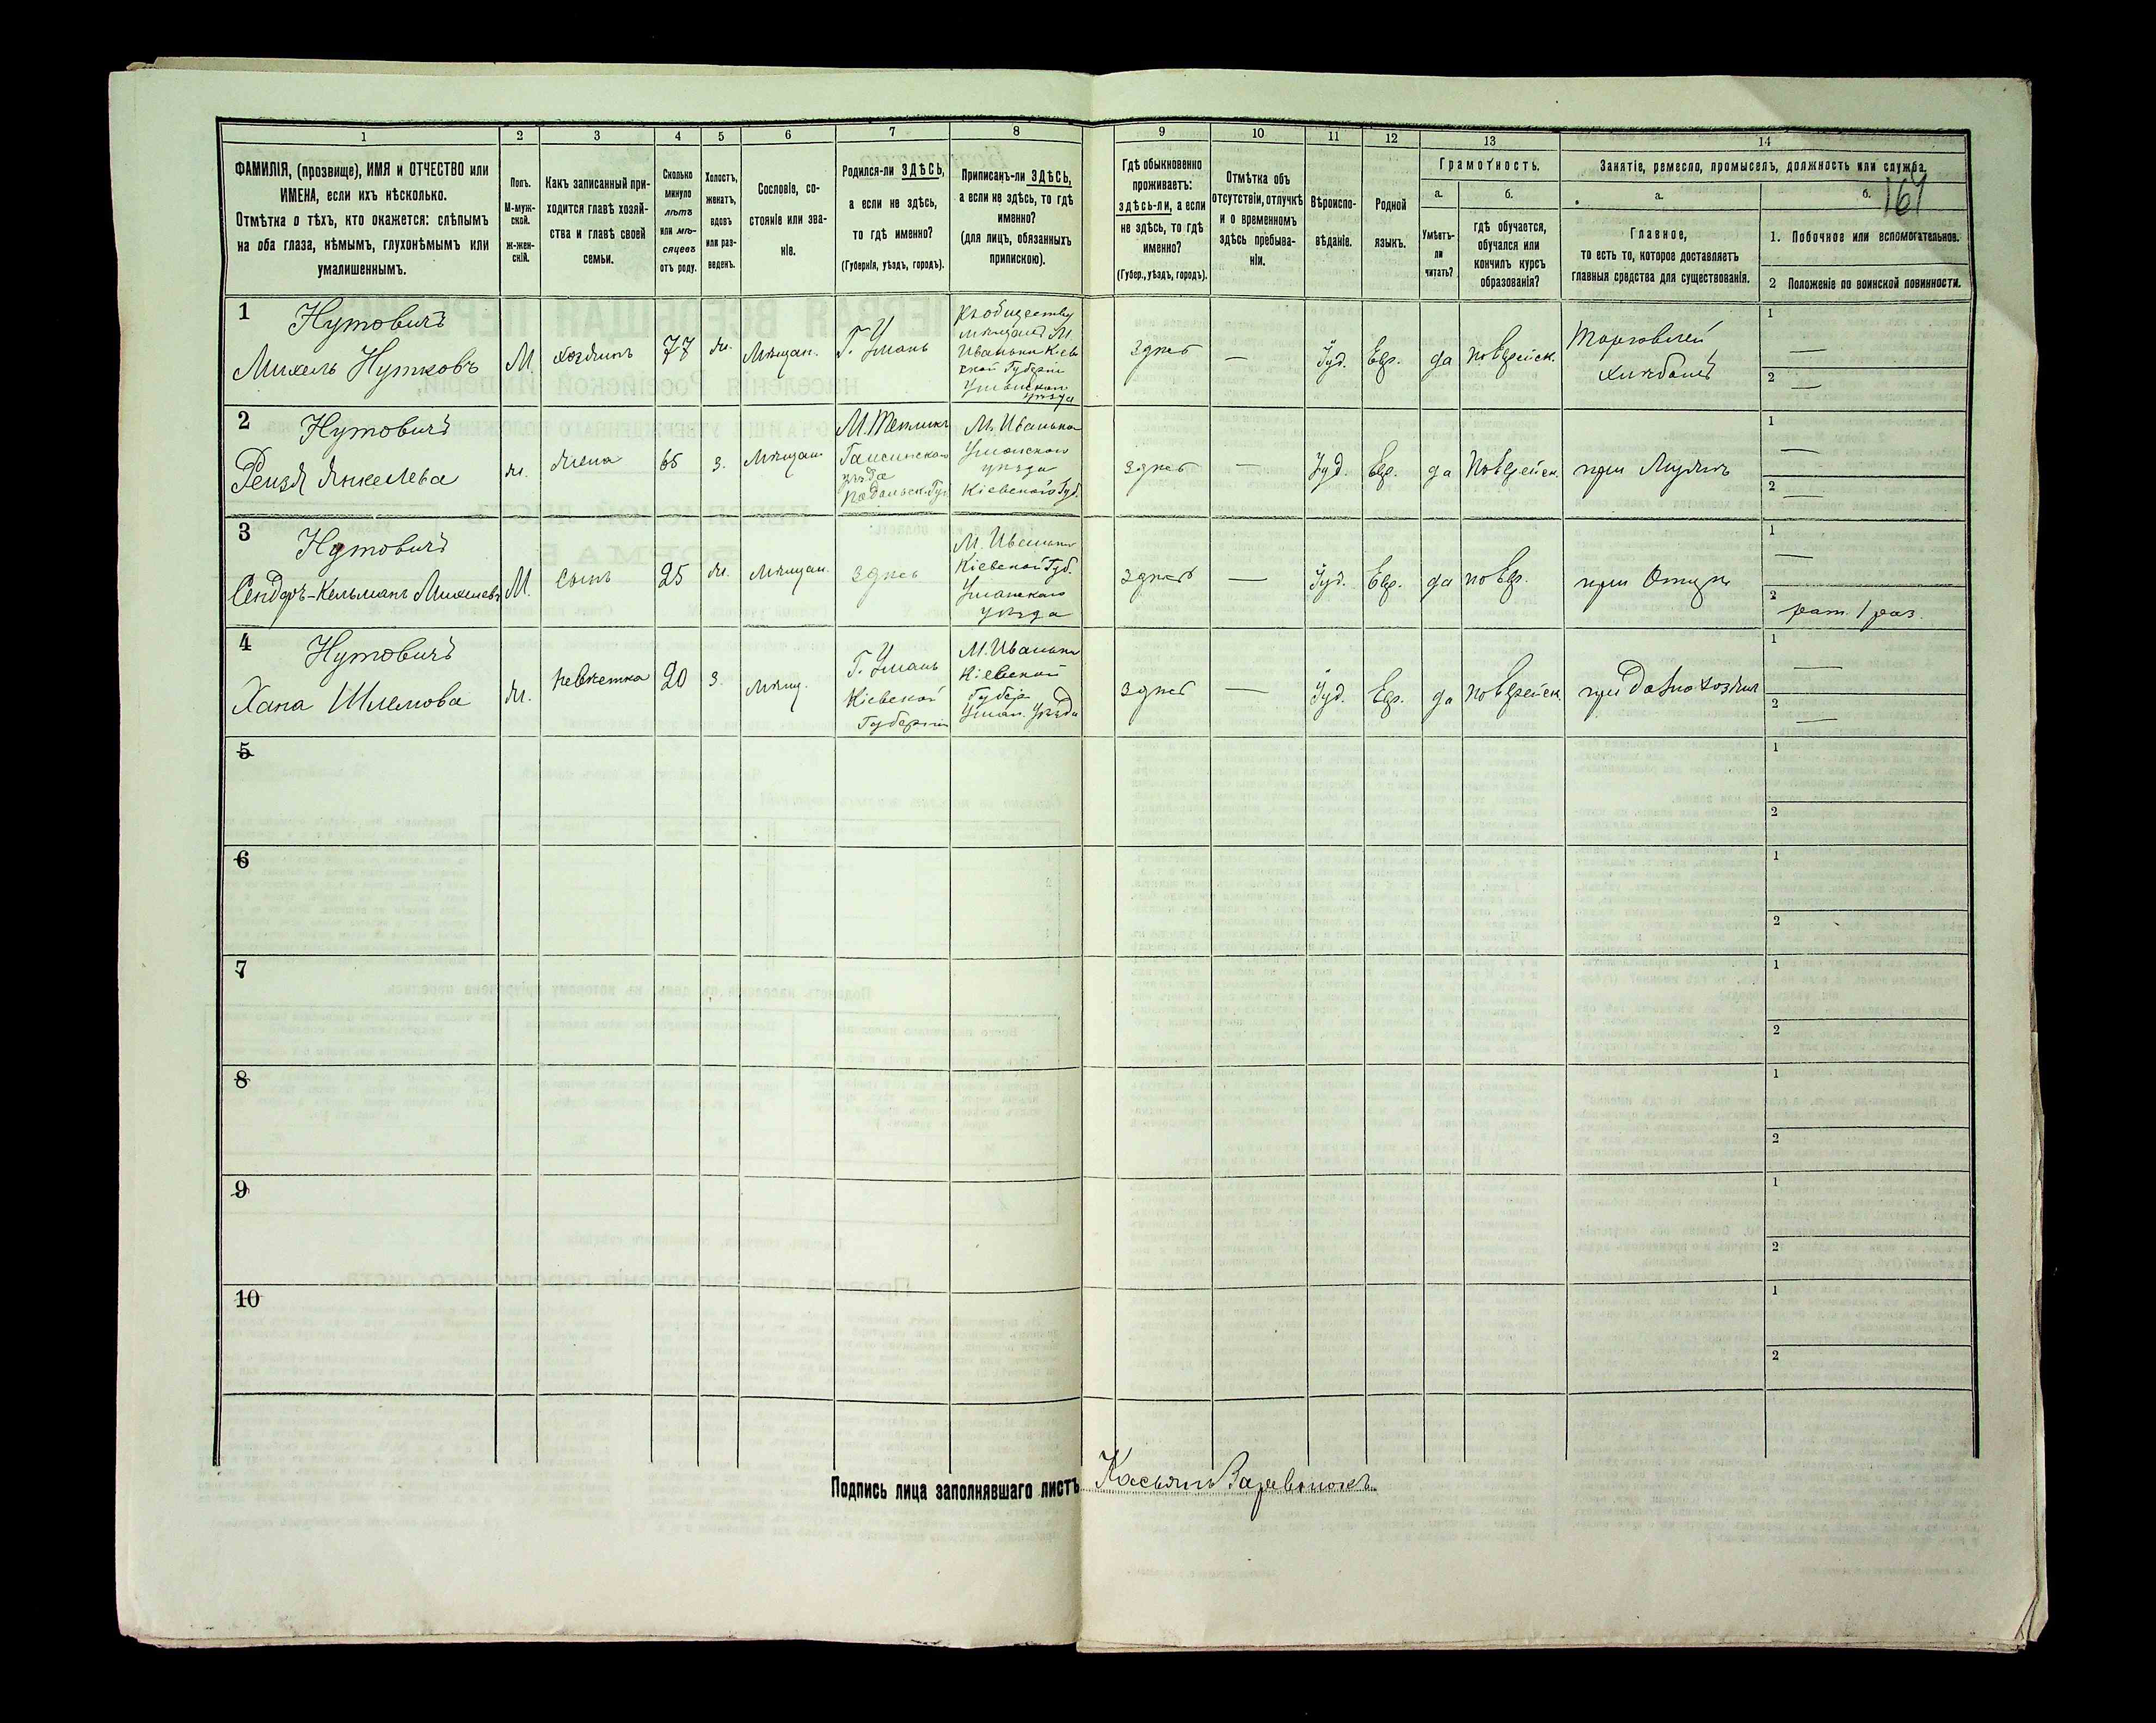 1 2 3 4 5 6 7 8 9 10 11 12 13 14
ФАМИЛІЯ, (прозвище), ИМЯ и ОТЧЕСТВО или
ИМЕНА, если ихъ нѣсколько.
Отмѣтка о тѣхъ, кто окажется: слѣпымъ
на оба глаза, нѣмымъ, глухонѣмымъ или
умалишеннымъ.
Полъ.
М-муж-
ской.
Ж-жен-
скій.
Какъ записанный при-
ходится главѣ хозяй-
ства и главѣ своей
семьи.
Сколько
минуло
лѣтъ
или мѣ-
сяцевъ
отъ роду.
Холостъ,
женатъ,
вдовъ
или раз-
веденъ.
Сословіе, со-
стояніе или зва-
ніе.
Родился-ли ЗДѢСЬ,
а если не здѣсь,
то гдѣ именно?
(Губернія, уѣздъ, городъ).
Приписанъ-ли ЗДѢСЬ,
а если не здѣсь, то гдѣ
именно?
(для лицъ, обязанныхъ
припискою).
Гдѣ обыкновенно
проживаетъ:
здѣсь-ли, а если
не здѣсь, то гдѣ
именно?
(Губер., уѣздъ, городъ).
Отмѣтка объ
отсутствіи, отлучкѣ
и о временномъ
здѣсь пребыва-
ніи.
Вѣроиспо-
вѣданіе.
Родной
языкъ.
Грамотность.
а.
Умѣетъ-
ли
читать?
б.
гдѣ обучается,
обучался или
кончилъ курсъ
образованія?
Занятіе, ремесло, промыселъ, должность или служба.
а.
Главное,
то есть то, которое доставляетъ
главныя средства для существованія.
б.
164
1. Побочное или вспомогательное.
2 Положеніе по воинской повинности.
1
Нутовичъ
Михель Нутковъ
М.
хозяинъ
77
ж.
Мѣщан.
Г. Умань
Къ обществу
мѣщанъ М.
Иваньки Кіев
ской Губерн
Уманскаго
уѣзда
Здѣсь
—
Іуд.
Евр.
да
по Еврейск.
Торговлей
хлѣбомъ
1 —
2 —
2
Нутовичъ
Рейзя Янкелева
ж.
жена
65
з.
Мѣщан.
М. Теплик
Гайсинскаго
уѣзда
Подольск. Губ
М. Иванька
Уманскаго
уѣзда
Кіевской Губ.
здѣсь
—
Іуд.
Евр.
да
по Еврейск.
при Мужѣ
1 —
2 —
3
Нутовичъ
Сендеръ-Кельманъ Михелевъ
М.
Сынъ
25
ж.
Мѣщан.
здѣсь
М. Иваньки
Кіевской Губ.
Уманскаго
уѣзда
здѣсь
—
Іуд.
Евр.
да
по Евр.
при Отцѣ
1 —
2 рат. 1 раз.
4
Нутовичъ
Хана Шлемова
ж.
невѣстка
20
з.
Мѣщ.
Г. Умань
Кіевской
Губерніи
М. Иваньки
Кіевской
Губер
Уман. Уѣзда
здѣсь
—
Іуд.
Евр.
да
по Еврейск.
1 —
2 —
5
1
2
6
1
2
7
1
2
8
1
2
9
1
2
10
1
2
Подпись лица заполнявшаго листъ
Касьянъ